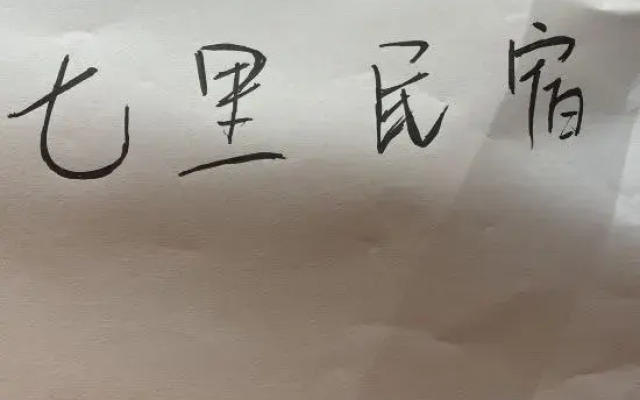 七里民宿